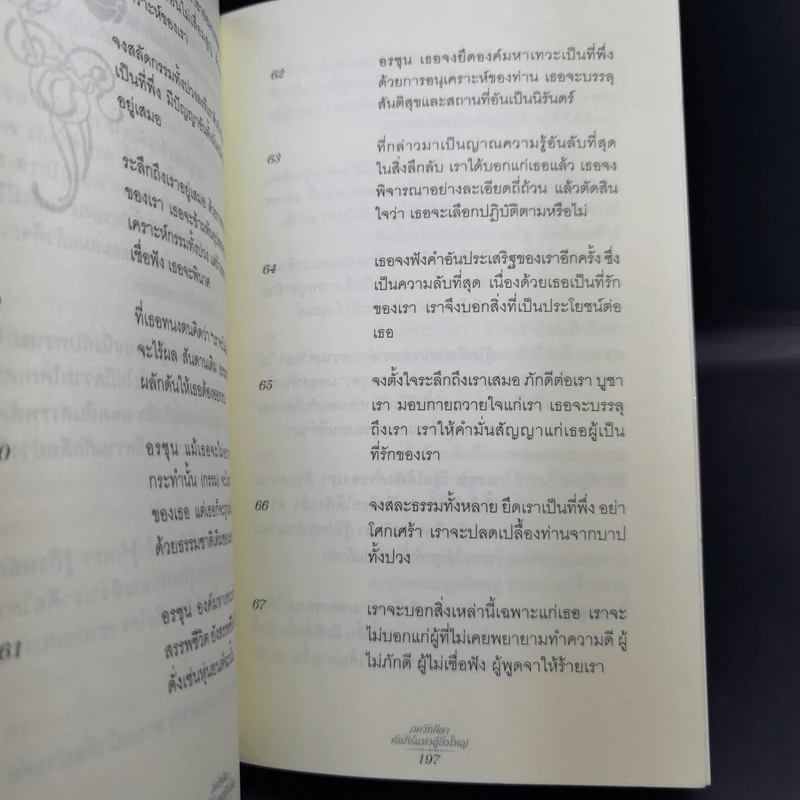 เคราะห์ของเรา
จงสลัดกรรมทั้งปวง
เป็นที่พึ่ง มีปัญญา
อยู่เสมอ
ระลึกถึงเราอยู่เสมอ
ของเรา เธอจะข้าม
เคราะห์กรรมทั้งปวง
เชื่อฟัง เธอจะพินาศ
ที่เธอทนงตนคิดว่า
จะไร้ผล สันดานเดิม
ผลักดันให้เธอต้อง
อรชุน แม้เธอจะไม่
กระทำนั้น (กรรม)
ของเธอ แต่เธอก็จะถูก
ด้วยธรรมชาติเดิมของ
61
อรชุน องค์มหาเทวะ
สรรพชีวิต ยังสรรพ
ดั่งเช่นหุ่นยนต์ฉะนั้น
62
อรชุน เธอจงยึดองค์มหาเทวะเป็นที่พึ่ง
ด้วยการอนุเคราะห์ของท่าน เธอจะบรรลุ
สันติสุขและสถานที่อันเป็นนิรันดร์
63
ที่กล่าวมาเป็นญาณความรู้อันลับที่สุด
ในสิ่งลึกลับ เราได้บอกแก่เธอแล้ว เธอจง
พิจารณาอย่างละเอียดถี่ถ้วน แล้วตัดสิน
ใจว่า เธอจะเลือกปฏิบัติตามหรือไม่
64
เธอจงฟังคำอันประเสริฐของเราอีกครั้ง ซึ่ง
เป็นความลับที่สุด เนื่องด้วยเธอเป็นที่รัก
ของเรา เราจึงบอกสิ่งที่เป็นประโยชน์ต่อ
เธอ
65
จงตั้งใจระลึกถึงเราเสมอ ภักดีต่อเรา บูชา
เรา มอบกายถวายใจแก่เรา เธอจะบรรลุ
ถึงเรา เราให้คำมั่นสัญญาแก่เธอผู้เป็น
ที่รักของเรา
66
จงสละธรรมทั้งหลาย ยึดเราเป็นที่พึ่ง อย่า
โศกเศร้า เราจะปลดเปลื้องท่านจากบาป
ทั้งปวง
67
เราจะบอกสิ่งเหล่านี้เฉพาะแก่เธอ เราจะ
ไม่บอกแก่ผู้ที่ไม่เคยพยายามทำความดี ผู้
ไม่ภักดี ผู้ไม่เชื่อฟัง ผู้พูดจาให้ร้ายเรา
ภควัทคีตา
คัมภีร์แห่งผู้ยิ่งใหญ่
197